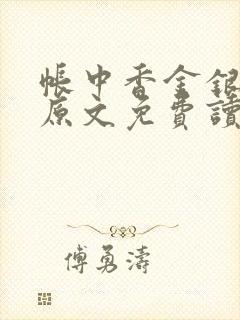 帳中香金銀
原文免費讀
傅勇濤